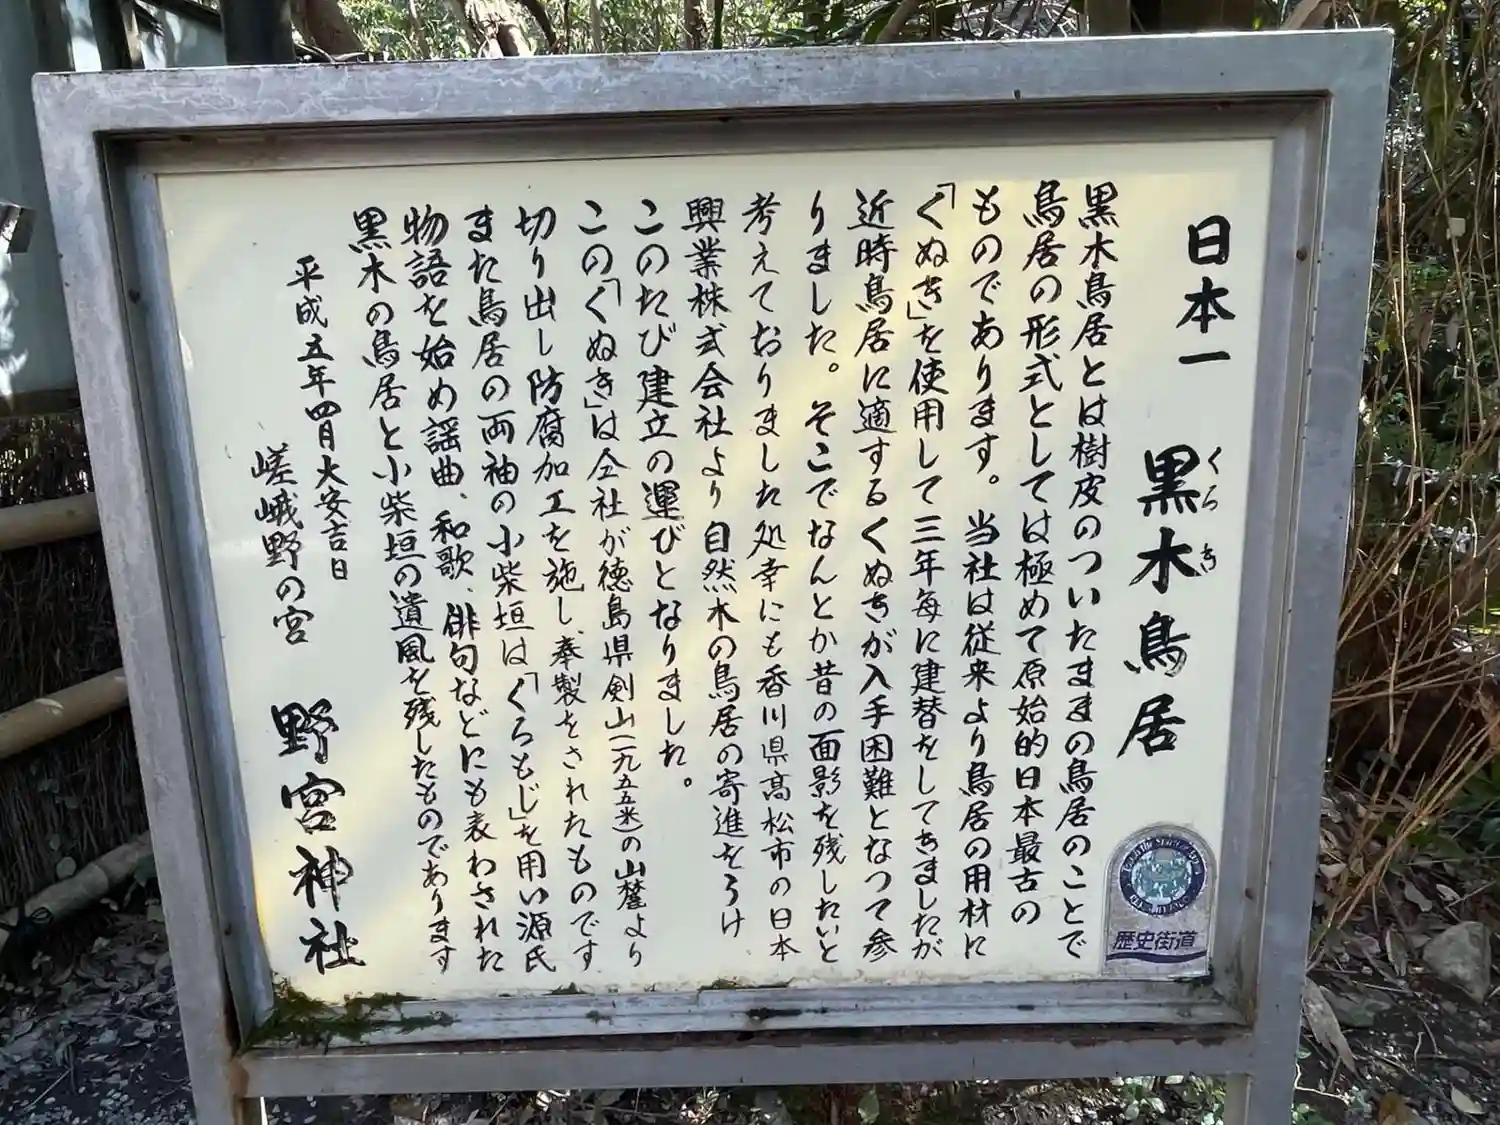 日本一 黒木鳥居
くろ き
黒木鳥居とは樹皮のついたままの鳥居のことで
鳥居の形式としては極めて原始的日本最古の
ものであります。当社は従来より鳥居の用材に
「くぬぎ」を使用して三年毎に建替をしてきましたが
近時鳥居に適するくぬぎが入手困難となって参
りました。そこでなんとか昔の面影を残したいと
考えておりました処幸にも香川県高松市の日本
興業株式会社より自然木の鳥居の寄進をうけ
このたび建立の運びとなりました。
この「くぬぎ」は仝社が徳島県剣山(一九五五米)の山麓より
切り出し防腐加工を施し、奉製をされたものです
また鳥居の両袖の小柴垣は「くろもじ」を用い源氏
物語を始め謡曲、和歌、俳句などにも表わされた
黒木の鳥居と小柴垣の遺風を残したものであります
平成五年四月大安吉日
嵯峨野の宮 野宮神社
歴史街道